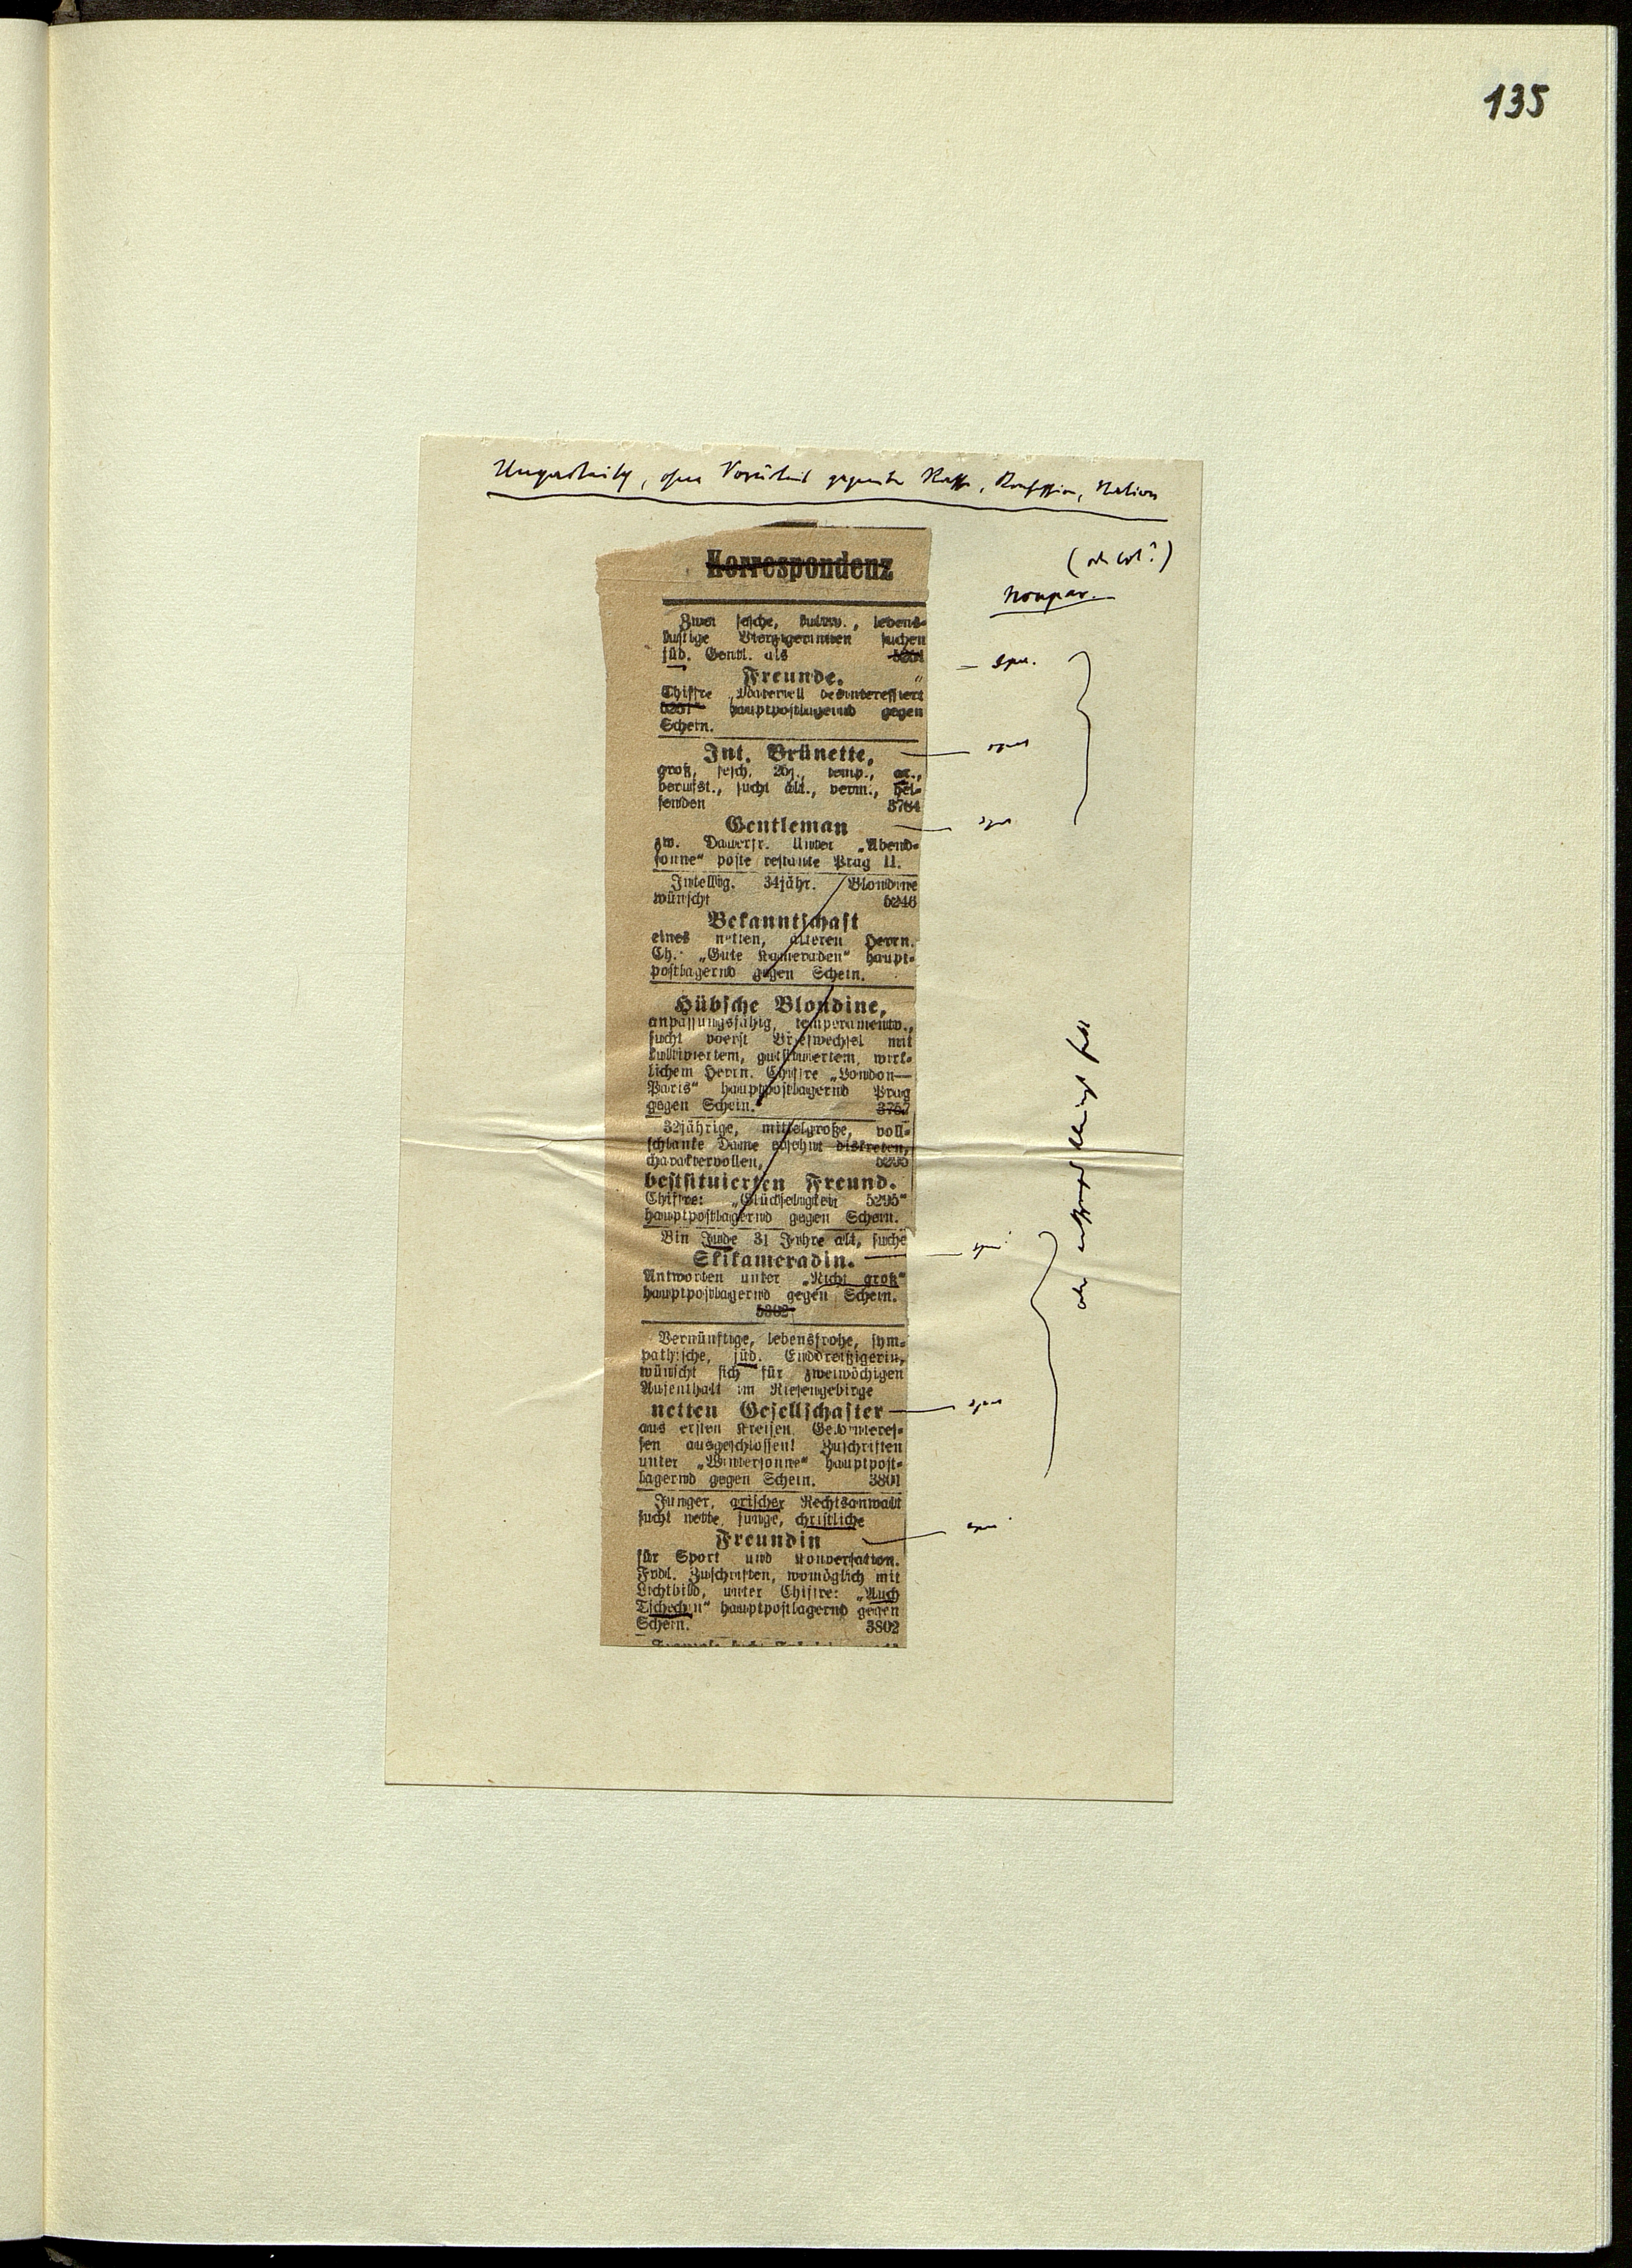 135
, ohne Vorurteil gegenüber Rasse, Konfession, Nation
Nonpar.
Korrespondenz
Zwei fesche, kultiv., lebens-
lustige Vierzigerinnen suchen
jüd. Gentl. als
Freunde.
Chiffre „Materiell desinteressiert
5251" hauptpostlagernd gegen
Schein.
Int. Brünette,
groß, fesch, 26j., temp., ar.,
berufst., sucht ält., verm., hel-
fenden 3764
Gentleman
zw. Dauerfr. Unter „Abend-
sonne" poste restante Prag II.
Intellig. 34jähr. Blondine
wünscht 5246
Bekanntschaft
eines netten, älteren Herrn.
Ch.: „Gute Kameraden" haupt-
postlagernd gegen Schein.
Hübsche Blondine,
anpassungsfähig, temperamentv.,
sucht vorerst Briefwechsel mit
kultiviertem, gutsituiertem, wirk-
lichem Herrn. Chiffre „London—
Paris" hauptpostlagernd Prag
gegen Schein. 3757
32jährige, mittelgroße, voll-
schlanke Dame ersehnt diskreten,
charaktervollen, 5295
bestsituierten Freund.
Chiffre: „Glückseligkeit 5295"
hauptpostlagernd gegen Schein.
Bin Jude 31 Jahre alt, suche
Skikameradin.
Antworten unter „Nicht groß"
hauptpostlagernd gegen Schein.
5302
Vernünftige, lebensfrohe, sym-
pathische, jüd. Enddreißigerin,
wünscht sich für zweiwöchigen
Aufenthalt im Riesengebirge
netten Gesellschafter
aus ersten Kreisen. Geldinteres-
sen ausgeschlossen! Zuschriften
unter „Wintersonne" hauptpost-
lagernd gegen Schein. 3801
Junger, arischer Rechtsanwalt
sucht nette, junge, christliche
Freundin
für Sport und Konversation.
Frdl. Zuschriften, womöglich mit
Lichtbild, unter Chiffre: „Auch
Tschechin" hauptpostlagernd gegen
Schein. 3802